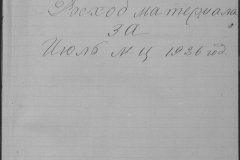 Расход материала
за
Июль м-ц 1926 год